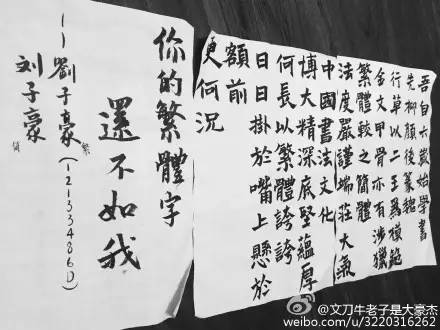 吾自六歲始學書
先柳顏後篆魏
行草以二王為
金文甲骨亦有涉獵
繁體較之簡體
法度嚴謹端莊大氣
中國書法文化
博大精深底堅蘊厚
何長以繁體誇誇
日日掛於嘴上懸於
額前
更何況
你的繁體字
還不如我
——劉子豪(12133486D)
繁
刘子豪
簡
@文刀牛老子是大豪杰
weibo.com/u/3220316262